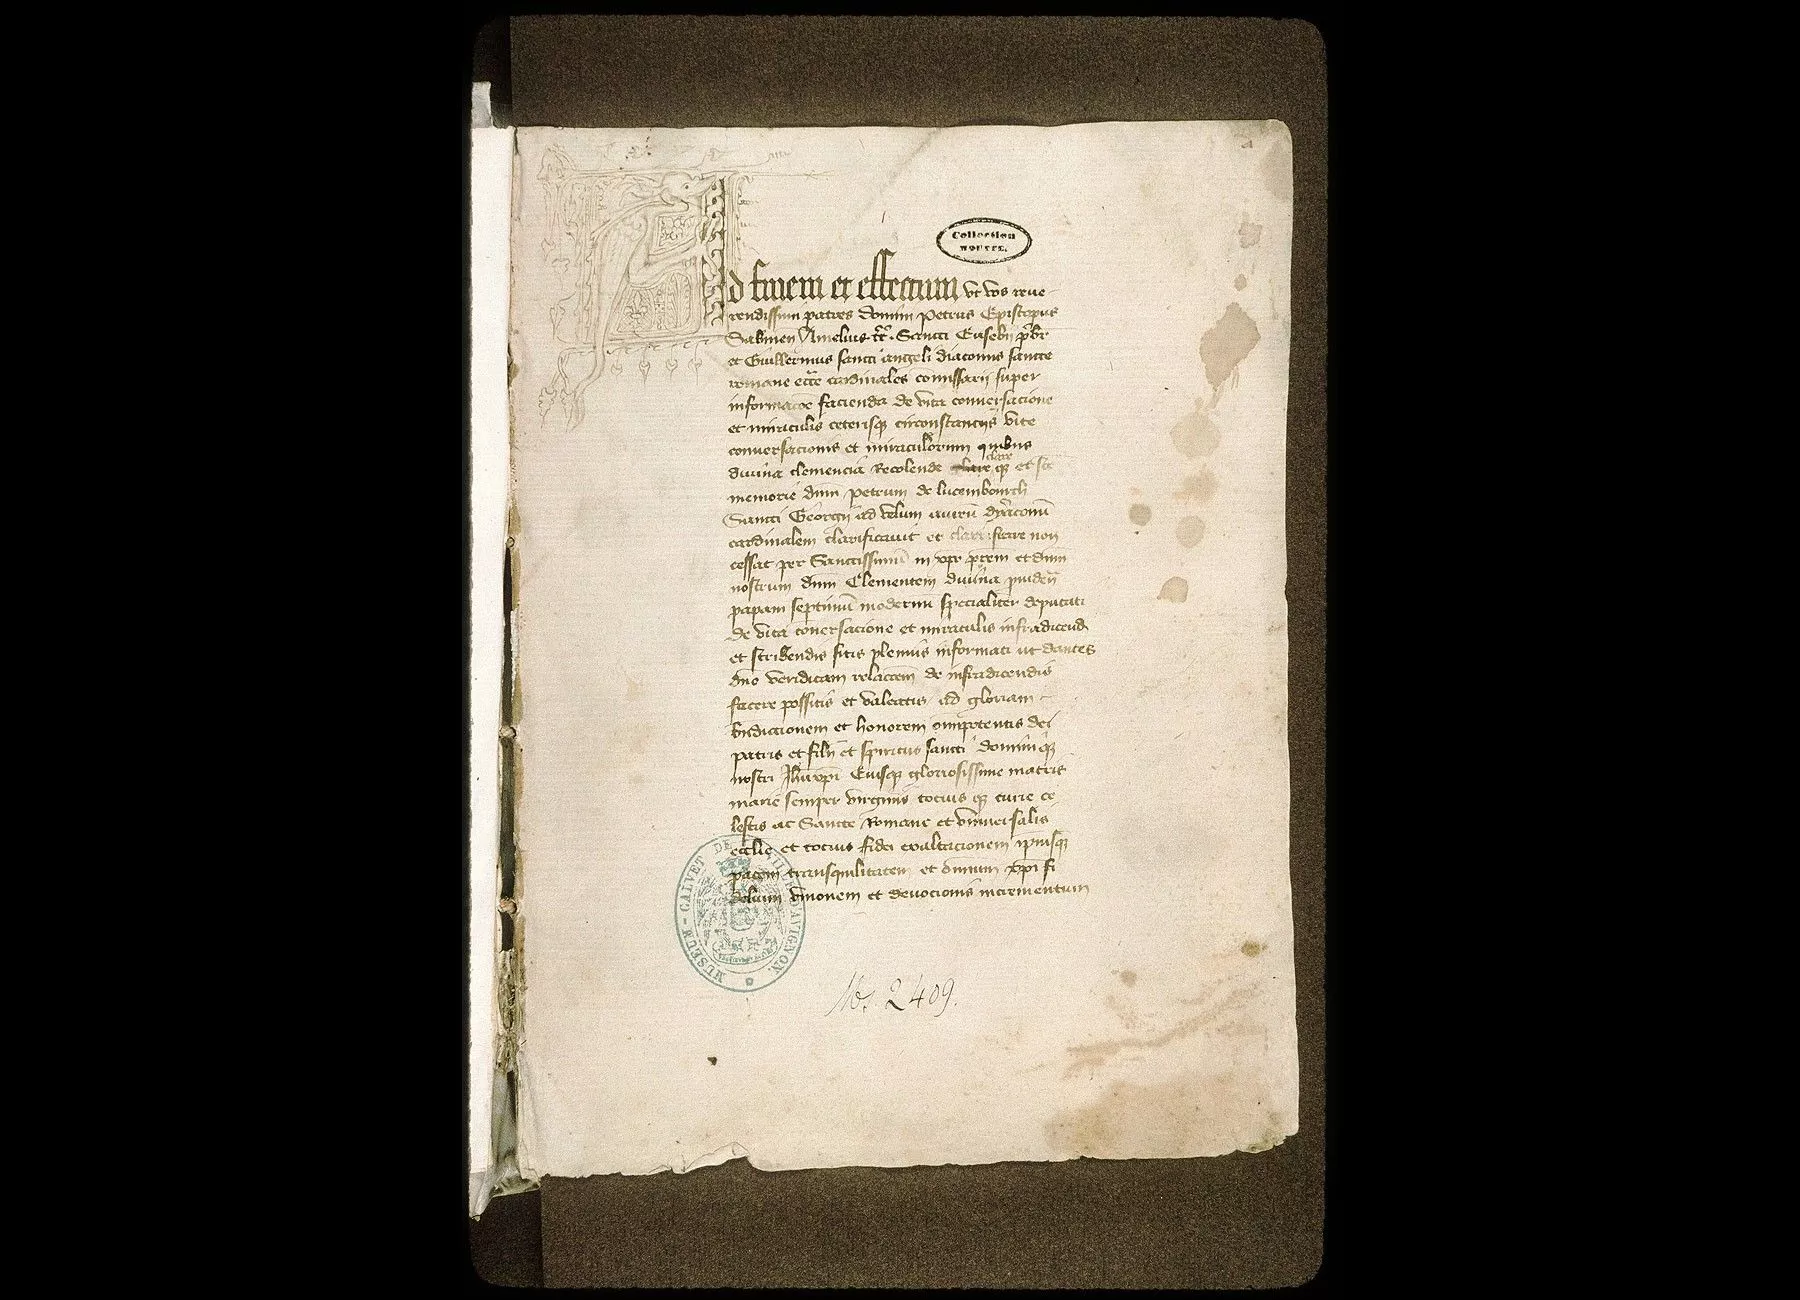 Collection
Ad finem et effectum ut vos reue-
rendissimi patres domini Petrus Episcopus
Sabinen Amelius tt. Sancti Eusebij pbr
et Guillermus sancti angeli diaconus sancte
romane ecce cardinales comissarij super
facienda de vita conuersacione
et miraculis ceterisque circonstancijs vite
conuersacionis et miraculorum quibus
diuina clemencia Recolende clare que et
memorie dnm Petrum de lucembourch
Sancti Georgij ad velum aureu dyaconu
cardinalem clarificauit et clarificare non
cessat per Sanctissimu in xpo prem et dnm
nostrum dnm Clementem diuina
papam septimu modernu specialiter deputati
de vita conersacione et miraculis infradicend
et scribendis sitis plenius informati ut dantes
dno veridicam de infradicendis
facere possitis et valeatis ad gloriam
et honorem omipotentis dei
patris et filij et spiritus sancti dominique
nostri Jhu xpi Eiusque gloriosissime matris
marie semper virginis tocius que curie ce
lestis ac Sancte Romane et vniuersalis
ecclie et tocius fidei exaltacionem ipsiusque
pacem transquilitatem et omnium xpi fi
delium vnionem et deuocionis incrementum
MUSEUM-CALVET DE LA VILLE D'AVIGNON
Ms. 2409.